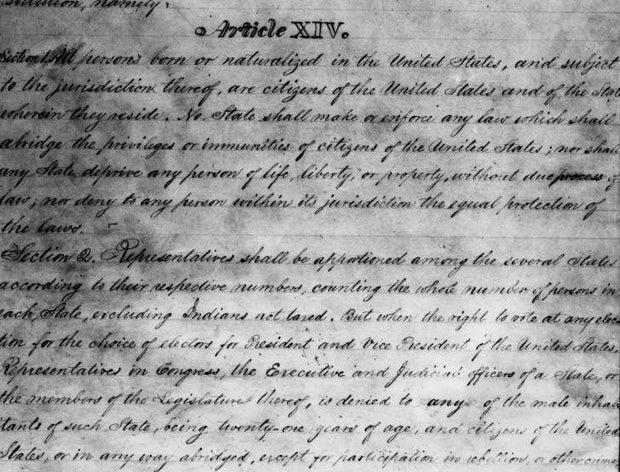 stitution, namely:
Article XIV.
Section 1. All persons born or naturalized in the United States, and subject
to the jurisdiction thereof, are citizens of the United States and of the State
wherein they reside. No State shall make or enforce any law which shall
abridge the privileges or immunities of citizens of the United States; nor shall
any State deprive any person of life, liberty, or property, without due process of
law; nor deny to any person within its jurisdiction the equal protection of
the laws.
Section 2. Representatives shall be apportioned among the several States
according to their respective numbers, counting the whole number of persons in
each State, excluding Indians not taxed. But when the right to vote at any elec
tion for the choice of electors for President and Vice President of the United States,
Representatives in Congress, the Executive and Judicial officers of a State, or
the members of the Legislature thereof, is denied to any of the male inhab
itants of such State, being twenty-one years of age, and citizens of the United
States, or in any way abridged, except for participation in rebellion, or other crime,